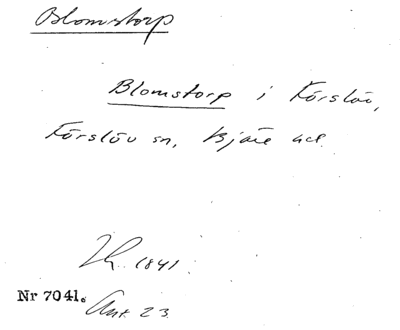 Blomstorp
Blomstorp i Förslöv,
Förslöv sn, Bjäre hd.
1841.
Nr 7041. Ant. 23.